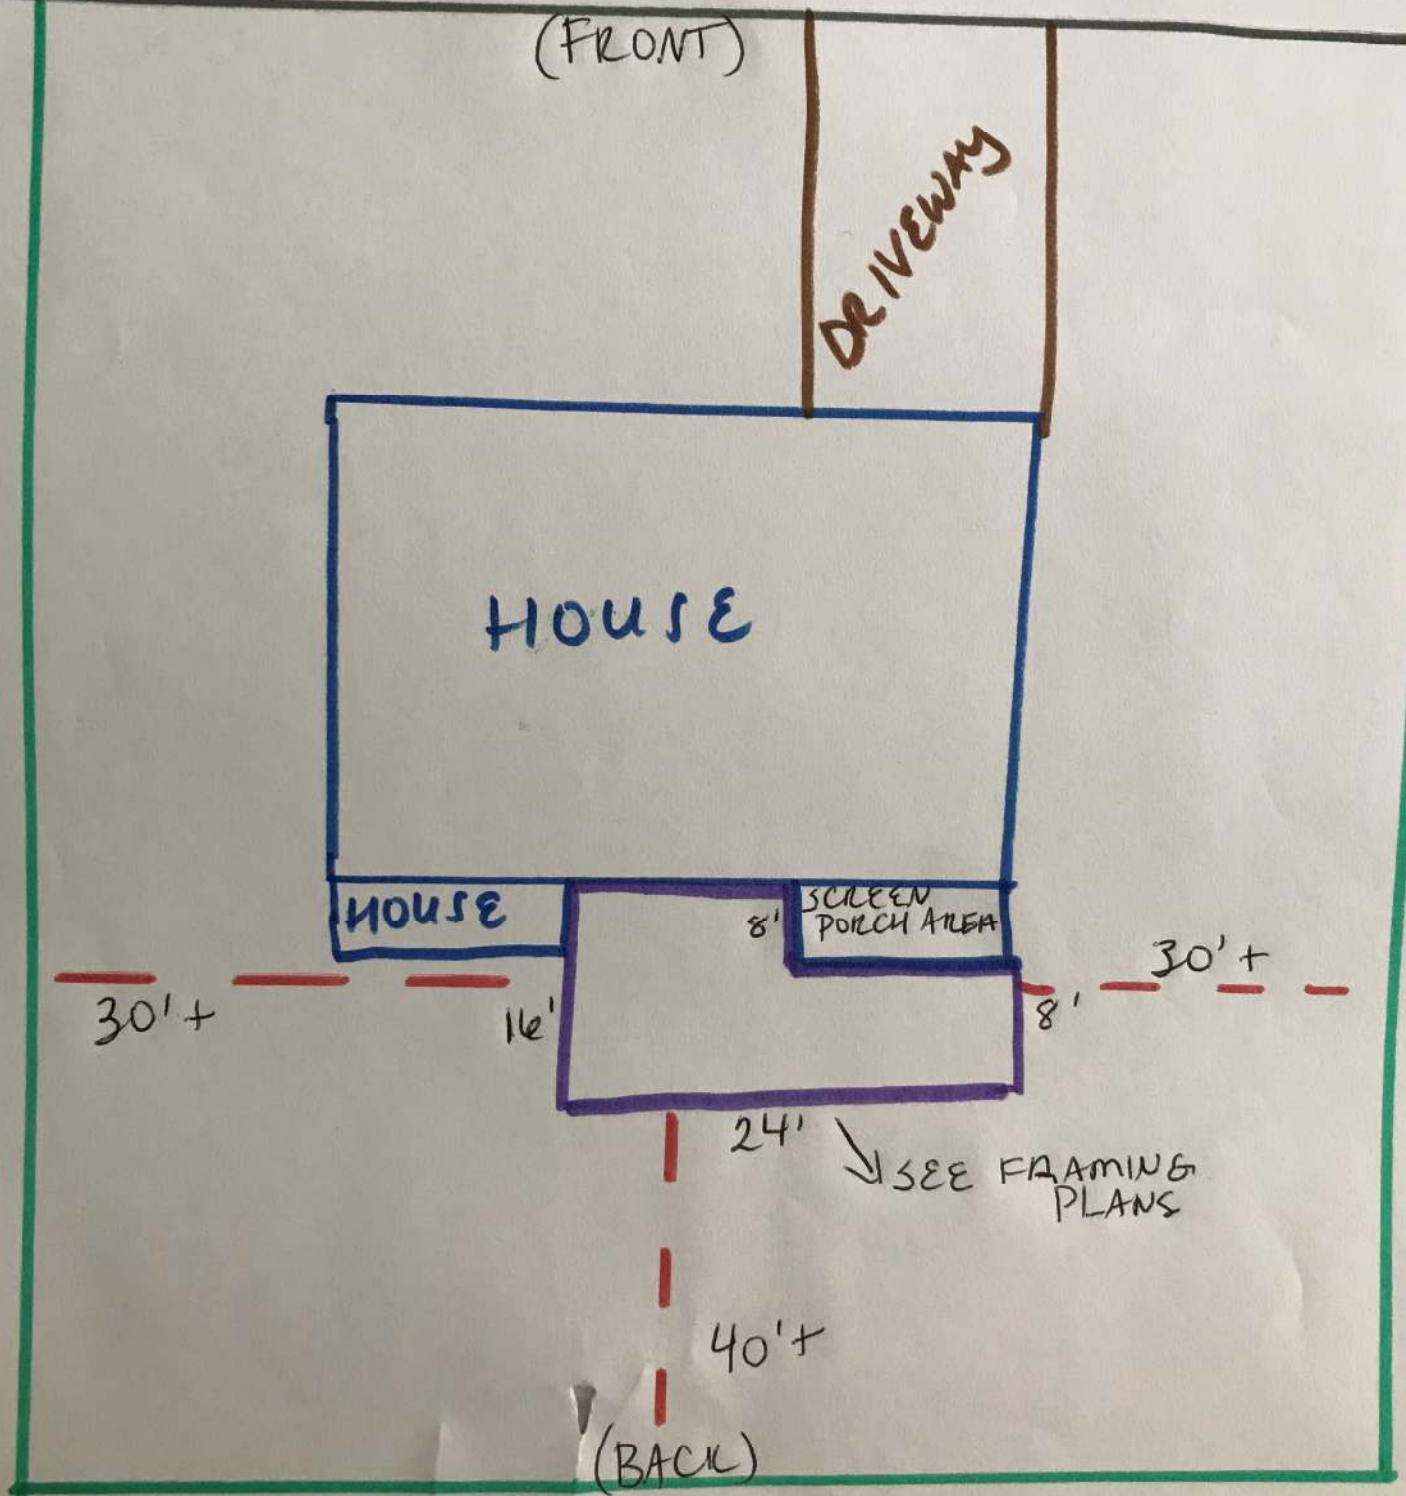 (FRONT)
DRIVEWAY
HOUSE
HOUSE
8'
SCREEN
PORCH AREA
30'+
30'+
16'
8'
24'
SEE FRAMING
PLANS
40'+
(BACK)